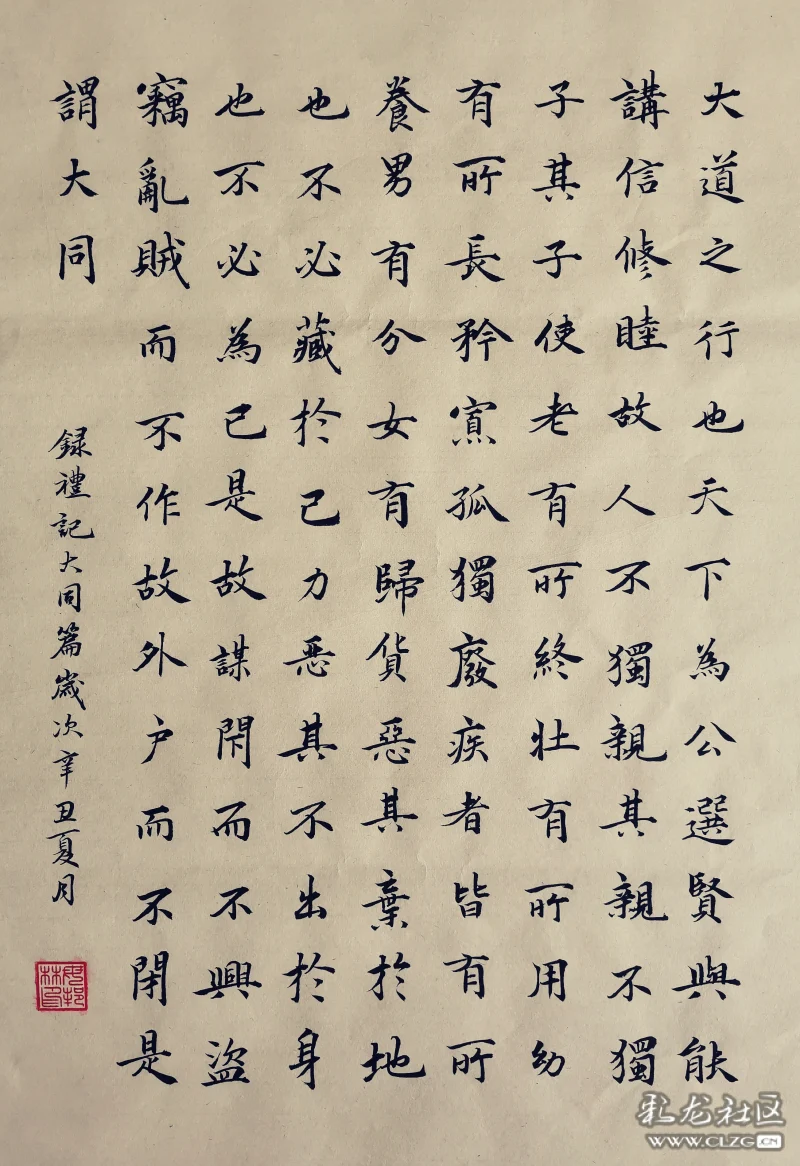 大道之行也天下為公選賢與能
講信修睦故人不獨親其親不獨
子其子使老有所終壯有所用幼
有所長矜寡孤獨廢疾者皆有所
養男有分女有歸貨惡其棄於地
也不必藏於己力恶其不出於身
也不必為己是故謀閇而不興盜
竊亂賊而不作故外户而不閉是
謂大同
録禮記大同篇歲次辛丑夏月
彩龙社区
WWW.CLZG.CN